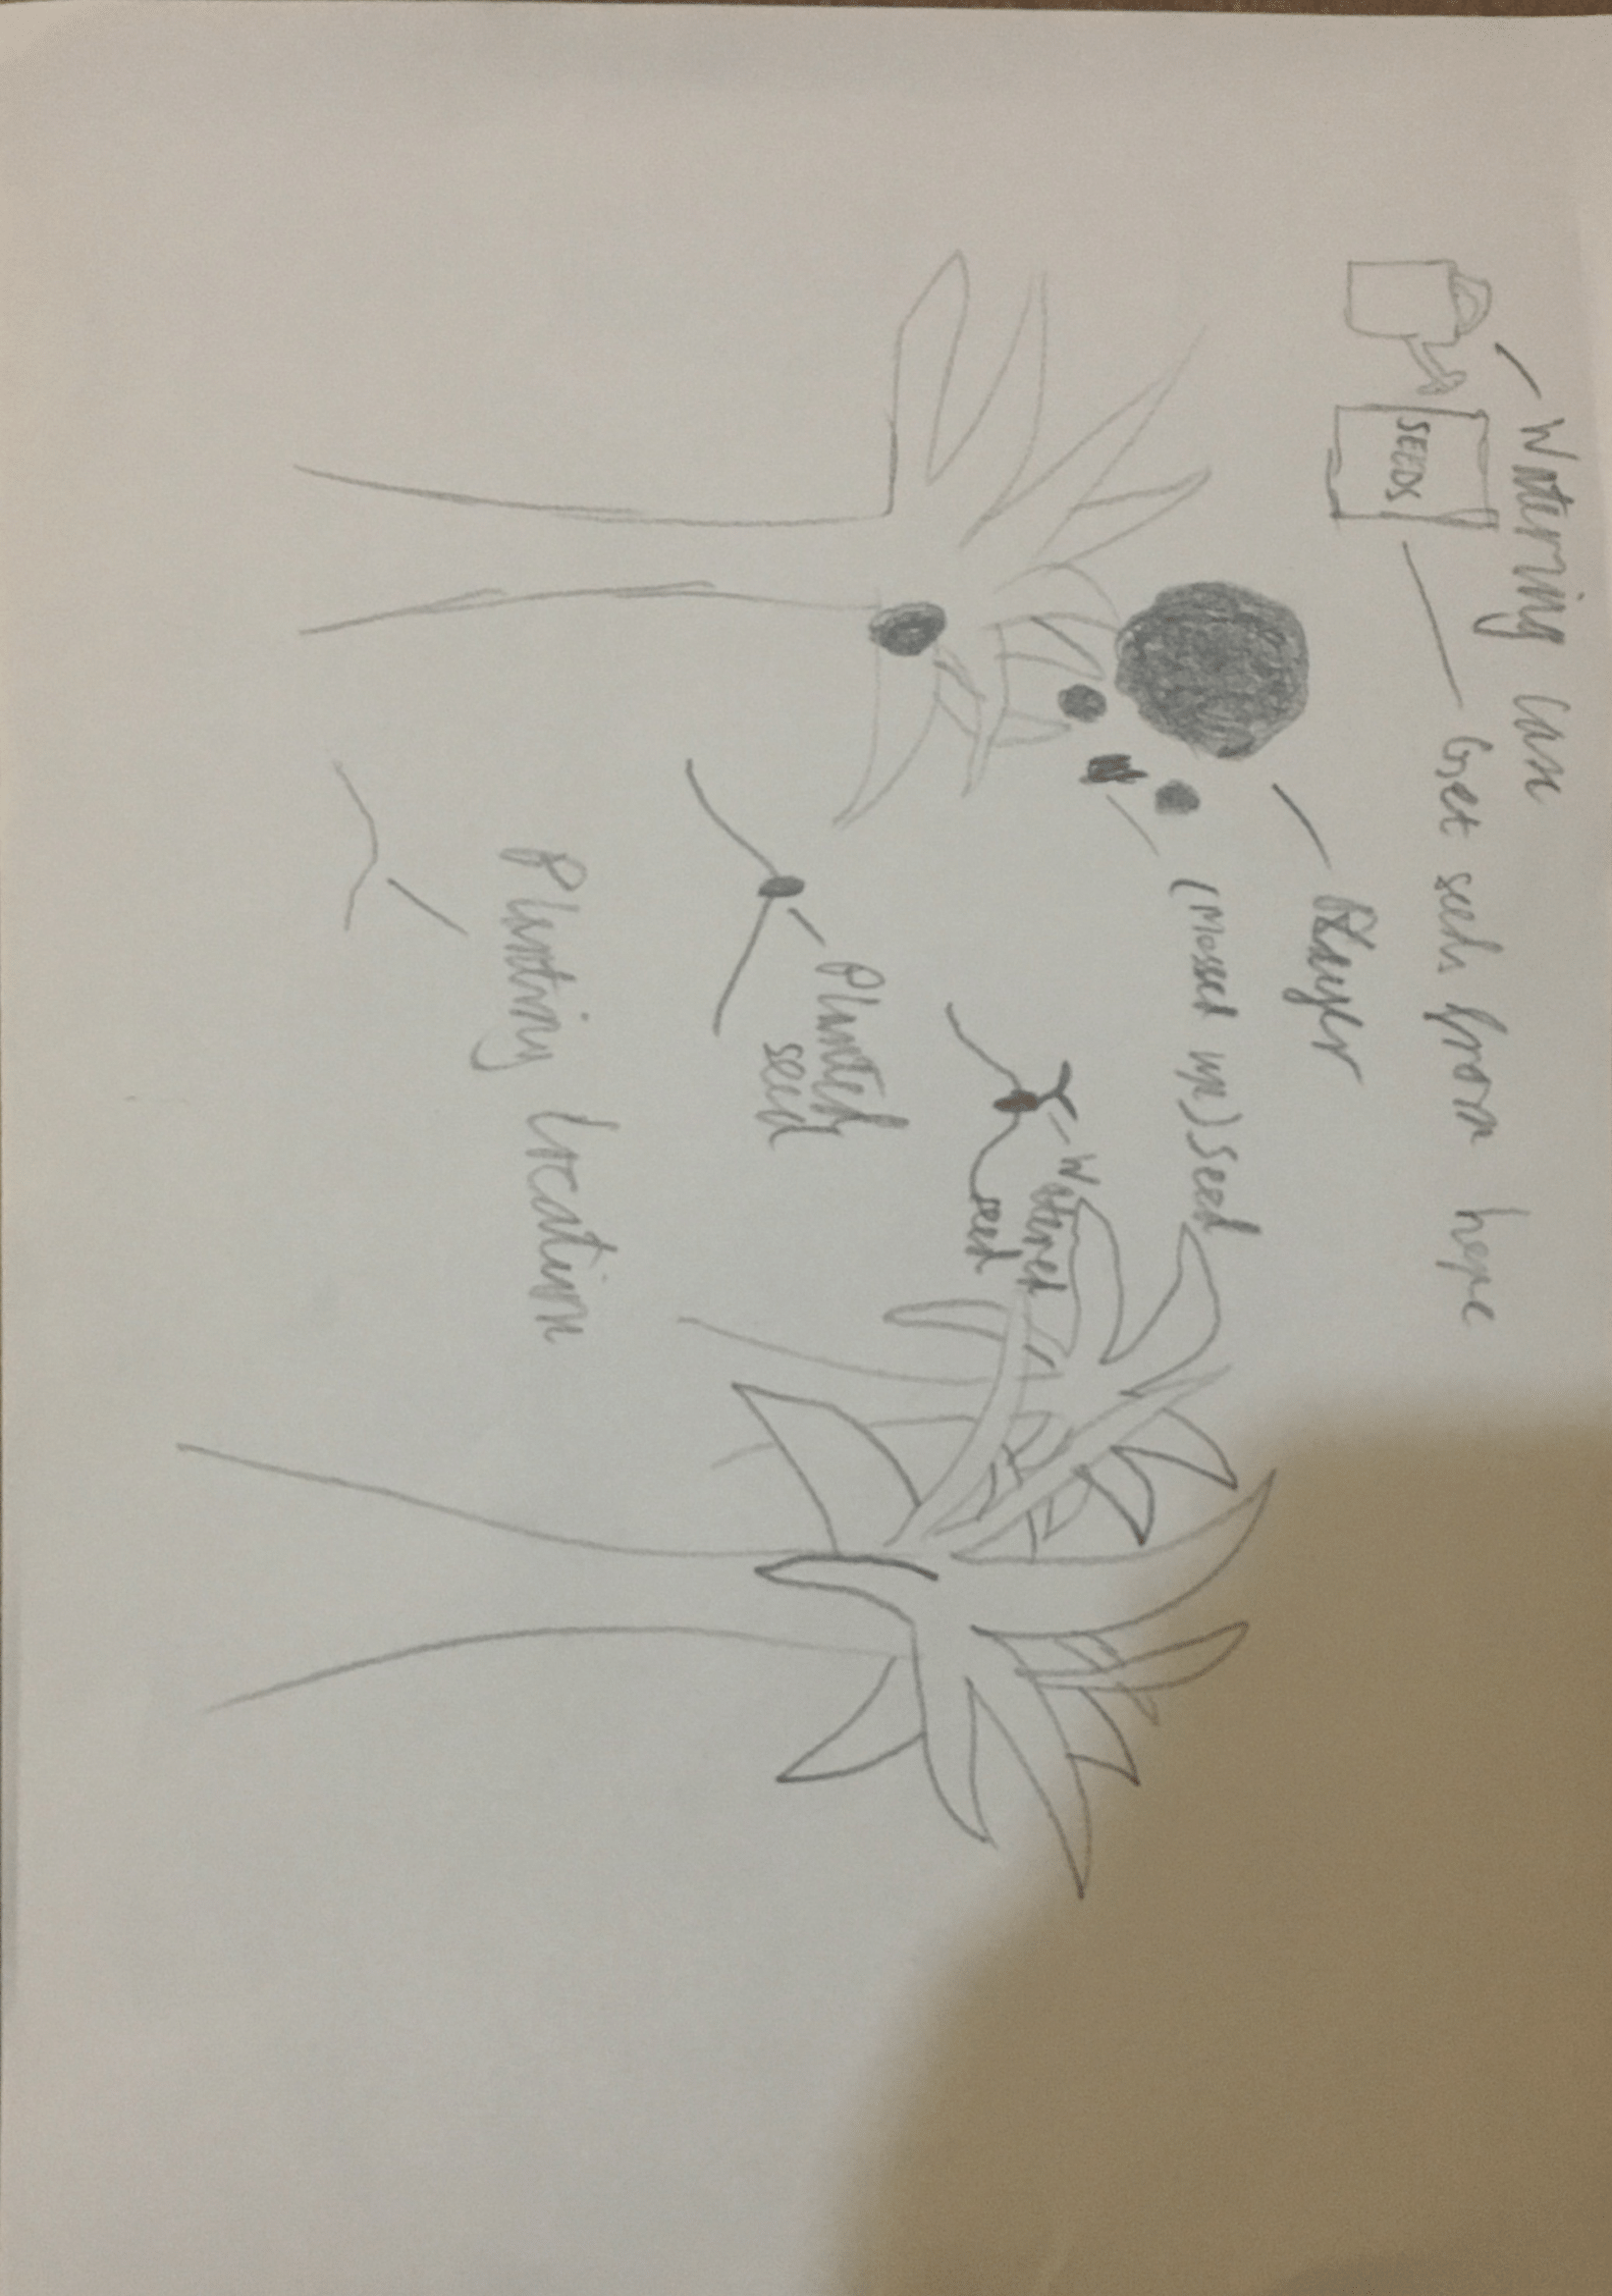 Watering can
SEEDS
Get seeds from here
Player
(Messed up) seed
Watered
seed
Planted
seed
Planting location